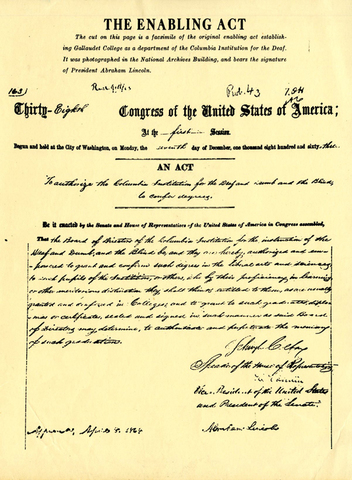 THE ENABLING ACT
The cut on this page is a facsimile of the original enabling act establish-
ing Gallaudet College as a department of the Columbia Institution for the Deaf.
It was photographed in the National Archives Building, and bears the signature
of President Abraham Lincoln.
Pub. 43
Thirty-Eighth Congress of the United States of America;
At the first Session,
Begun and held at the City of Washington, on Monday, the seventh day of December, one thousand eight hundred and sixty-three
AN ACT
To authorize the Columbia Institution for the Deaf and Dumb and the Blind
to confer degrees.
Be it enacted by the Senate and House of Representatives of the United States of America in Congress assembled,
That the Board of Directors of the Columbia Institution for the instruction of the
Deaf and Dumb, and the Blind be, and they are hereby, authorized and em-
powered to grant and confirm such degrees in the liberal arts and sciences,
to such pupils of the Institution, or others, who by their proficiency in learning
or other meritorious distinction they shall think entitled to them, as are usually
granted and conferred in Colleges; and to grant to such graduates diplo-
mas or certificates, sealed and signed in such manner as said Board
of Directors may determine, to authenticate and perpetuate the memory
of such graduations.
Schuyler Colfax
Speaker of the House of Representatives
H. Hamlin
Vice President of the United States
and President of the Senate.
Approved, April 8, 1864
Abraham Lincoln